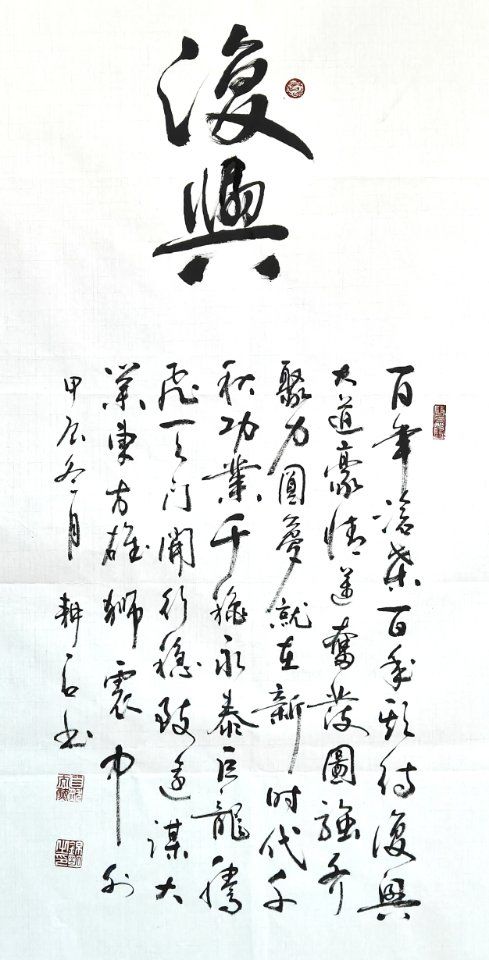 復興
百年滄桑百年期待復興
大道豪情奮發圖強齐
聚力圓夢就在新时代千
秋功業千永泰巨龍騰
飛天门開行穩致遠謀大
業東方雄獅震中外
甲辰冬月耕石书